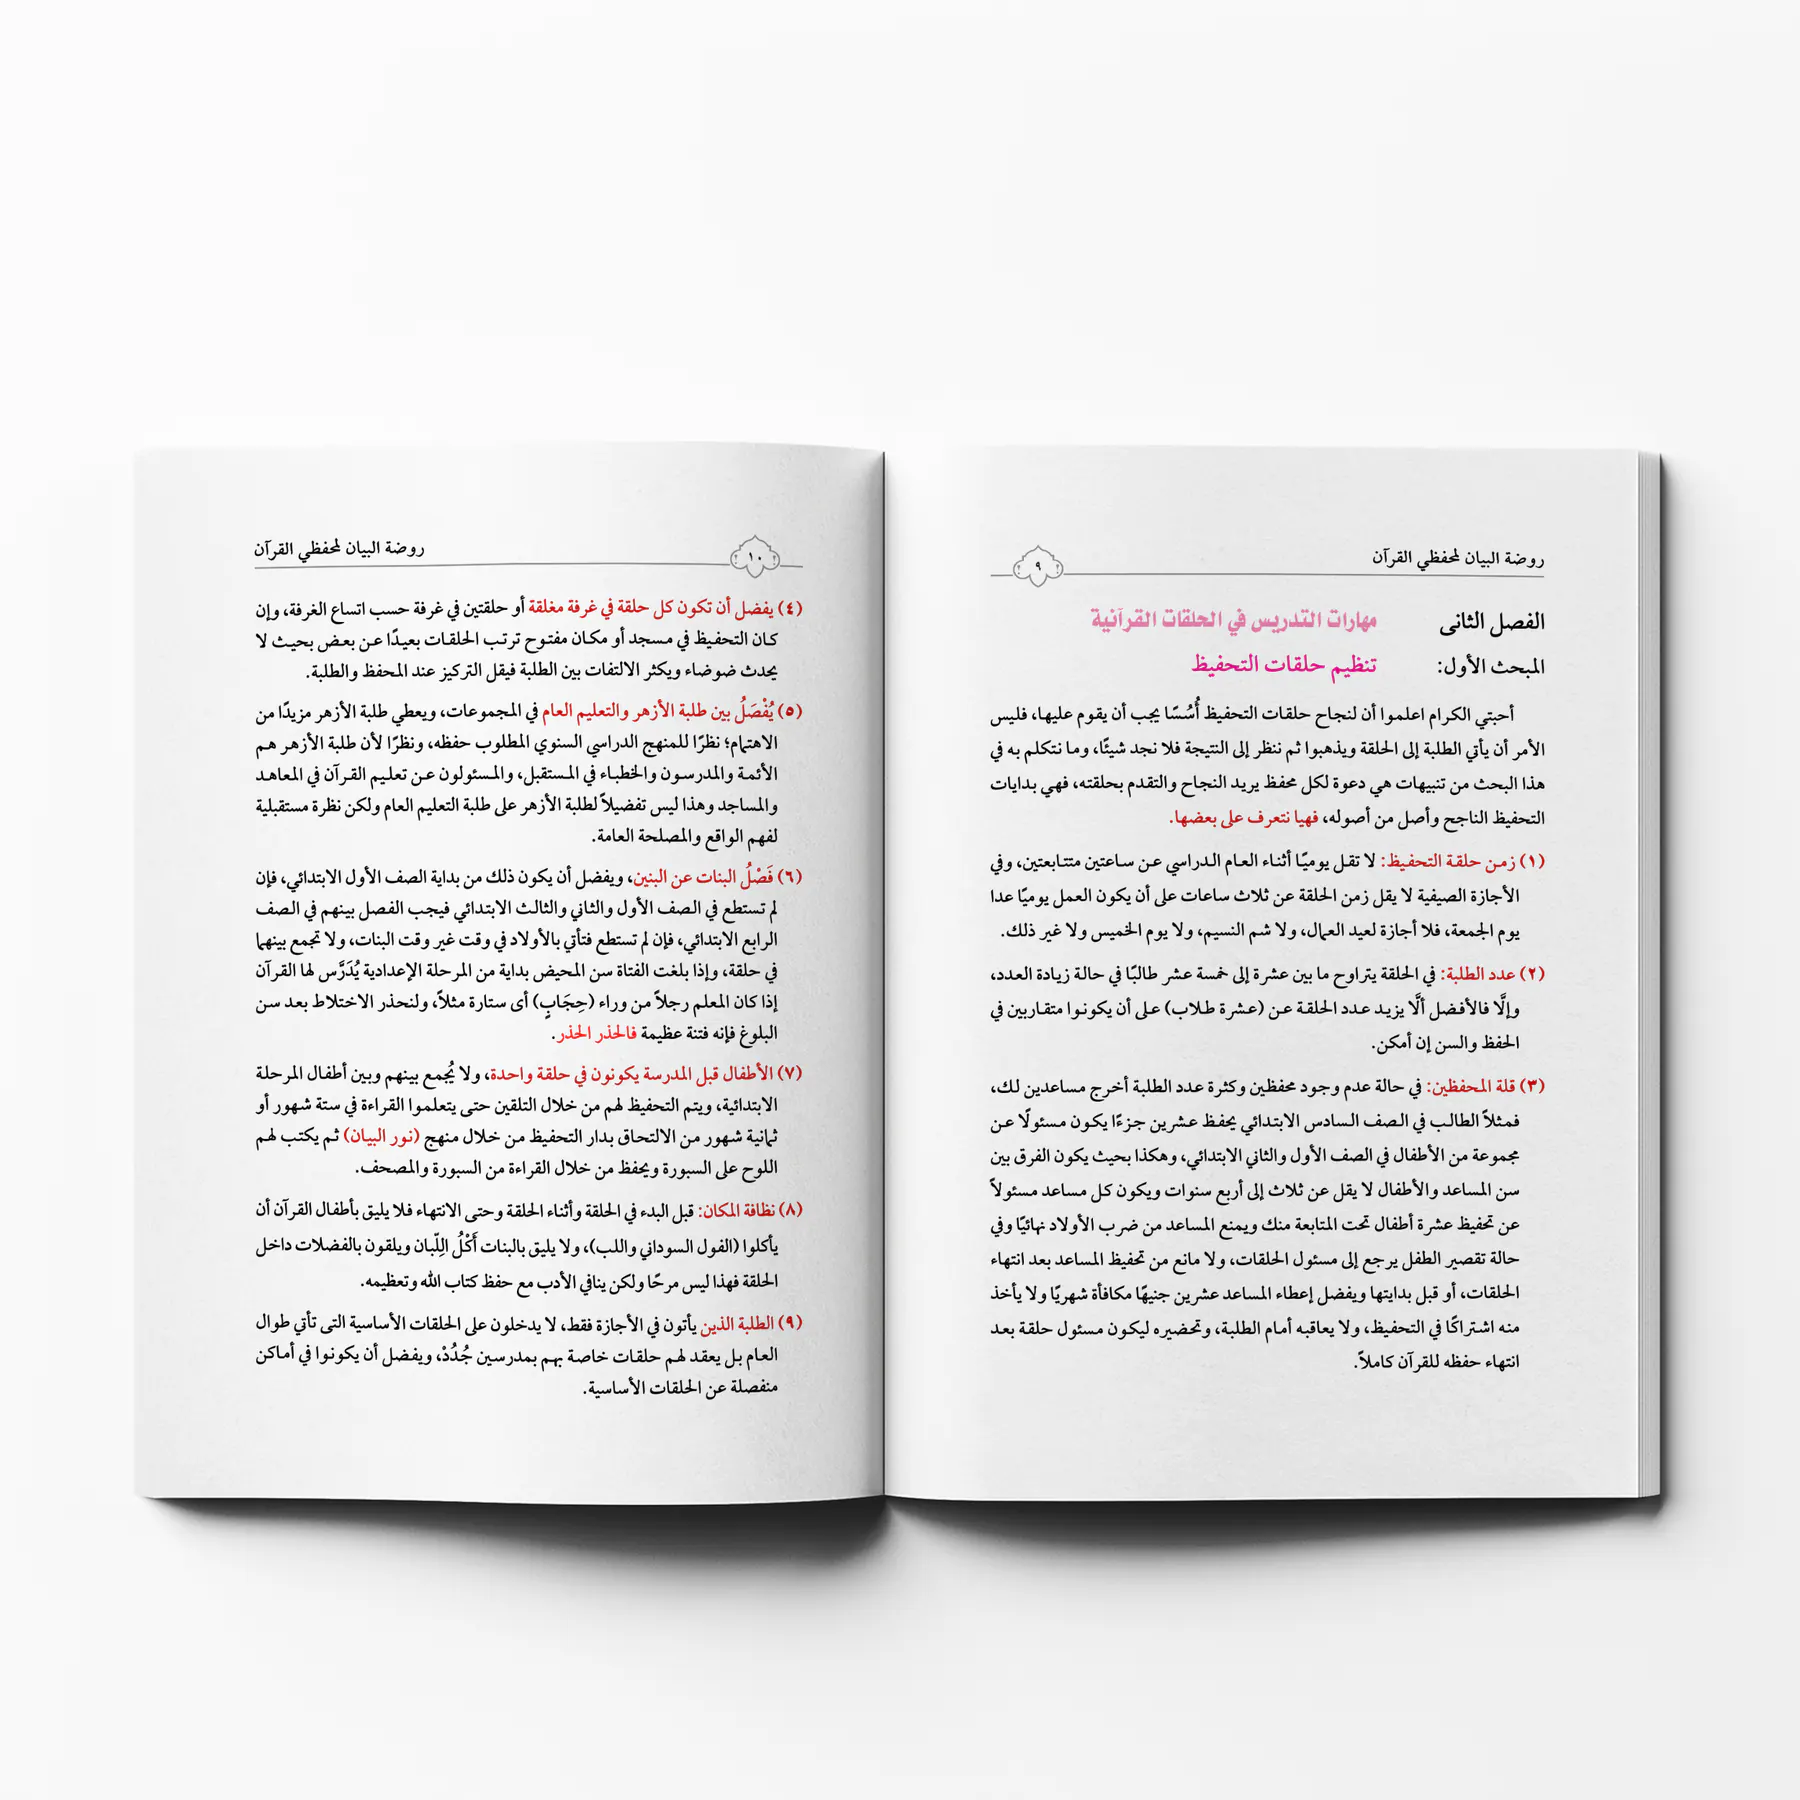 روضة البيان لمحفظي القرآن
٩
الفصل الثانى مهارات التدريس في الحلقات القرآنية
المبحث الأول: تنظيم حلقات التحفيظ
أحبتي الكرام اعلموا أن لنجاح حلقات التحفيظ أُسُسًا يجب أن يقوم عليها، فليس
الأمر أن يأتي الطلبة إلى الحلقة ويذهبوا ثم ننظر إلى النتيجة فلا نجد شيئًا، وما نتكلم به في
هذا البحث من تنبيهات هي دعوة لكل محفظ يريد النجاح والتقدم بحلقته، فهي بدايات
التحفيظ الناجح وأصل من أصوله، فهيا نتعرف على بعضها.
(١) زمن حلقة التحفيظ: لا تقل يوميًا أثناء العام الدراسي عن ساعتين متتابعتين، وفي
الأجازة الصيفية لا يقل زمن الحلقة عن ثلاث ساعات على أن يكون العمل يوميًا عدا
يوم الجمعة، فلا أجازة لعيد العمال، ولا شم النسيم، ولا يوم الخميس ولا غير ذلك.
(٢) عدد الطلبة: في الحلقة يتراوح ما بين عشرة إلى خمسة عشر طالبًا في حالة زيادة العدد،
وإلَّا فالأفضل ألَّا يزيد عدد الحلقة عن (عشرة طلاب) على أن يكونوا متقاربين في
الحفظ والسن إن أمكن.
(٣) قلة المحفظين: في حالة عدم وجود محفظين وكثرة عدد الطلبة أخرج مساعدين لك،
فمثلاً الطالب في الصف السادس الابتدائي يحفظ عشرين جزءًا يكون مسئولًا عن
مجموعة من الأطفال في الصف الأول والثاني الابتدائي، وهكذا بحيث يكون الفرق بين
سن المساعد والأطفال لا يقل عن ثلاث إلى أربع سنوات ويكون كل مساعد مسئولاً
عن تحفيظ عشرة أطفال تحت المتابعة منك ويمنع المساعد من ضرب الأولاد نهائيًا وفي
حالة تقصير الطفل يرجع إلى مسئول الحلقات، ولا مانع من تحفيظ المساعد بعد انتهاء
الحلقات، أو قبل بدايتها ويفضل إعطاء المساعد عشرين جنيهًا مكافأة شهريًا ولا يأخذ
منه اشتراكًا في التحفيظ، ولا يعاقبه أمام الطلبة، وتحضيره ليكون مسئول حلقة بعد
انتهاء حفظه للقرآن كاملاً.
١٠
روضة البيان لمحفظي القرآن
(٤) يفضل أن تكون كل حلقة في غرفة مغلقة أو حلقتين في غرفة حسب اتساع الغرفة، وإن
كان التحفيظ في مسجد أو مكان مفتوح ترتب الحلقات بعيدًا عن بعض بحيث لا
يحدث ضوضاء ويكثر الالتفات بين الطلبة فيقل التركيز عند المحفظ والطلبة.
(٥) يُفْصَلُ بين طلبة الأزهر والتعليم العام في المجموعات، ويعطي طلبة الأزهر مزيدًا من
الاهتمام؛ نظرًا للمنهج الدراسي السنوي المطلوب حفظه، ونظرًا لأن طلبة الأزهر هم
الأئمة والمدرسون والخطباء في المستقبل، والمسئولون عن تعليم القرآن في المعاهد
والمساجد وهذا ليس تفضيلاً لطلبة الأزهر على طلبة التعليم العام ولكن نظرة مستقبلية
لفهم الواقع والمصلحة العامة.
(٦) فَصْلُ البنات عن البنين، ويفضل أن يكون ذلك من بداية الصف الأول الابتدائي، فإن
لم تستطع في الصف الأول والثاني والثالث الابتدائي فيجب الفصل بينهم في الصف
الرابع الابتدائي، فإن لم تستطع فتأتي بالأولاد في وقت غير وقت البنات، ولا تجمع بينهما
في حلقة، وإذا بلغت الفتاة سن المحيض بداية من المرحلة الإعدادية يُدَرَّس لها القرآن
إذا كان المعلم رجلاً من وراء (حِجَابٍ) أى ستارة مثلاً، ولنحذر الاختلاط بعد سن
البلوغ فإنه فتنة عظيمة فالحذر الحذر.
(٧) الأطفال قبل المدرسة يكونون في حلقة واحدة، ولا يُجمع بينهم وبين أطفال المرحلة
الابتدائية، ويتم التحفيظ لهم من خلال التلقين حتى يتعلموا القراءة في ستة شهور أو
ثمانية شهور من الالتحاق بدار التحفيظ من خلال منهج (نور البيان) ثم يكتب لهم
اللوح على السبورة ويحفظ من خلال القراءة من السبورة والمصحف.
(٨) نظافة المكان: قبل البدء في الحلقة وأثناء الحلقة وحتى الانتهاء فلا يليق بأطفال القرآن أن
يأكلوا (الفول السوداني واللب)، ولا يليق بالبنات أَكْلُ اللِّبان ويلقون بالفضلات داخل
الحلقة فهذا ليس مرحًا ولكن ينافي الأدب مع حفظ كتاب الله وتعظيمه.
(٩) الطلبة الذين يأتون في الأجازة فقط، لا يدخلون على الحلقات الأساسية التى تأتي طوال
العام بل يعقد لهم حلقات خاصة بهم بمدرسين جُدُدْ، ويفضل أن يكونوا في أماكن
منفصلة عن الحلقات الأساسية.